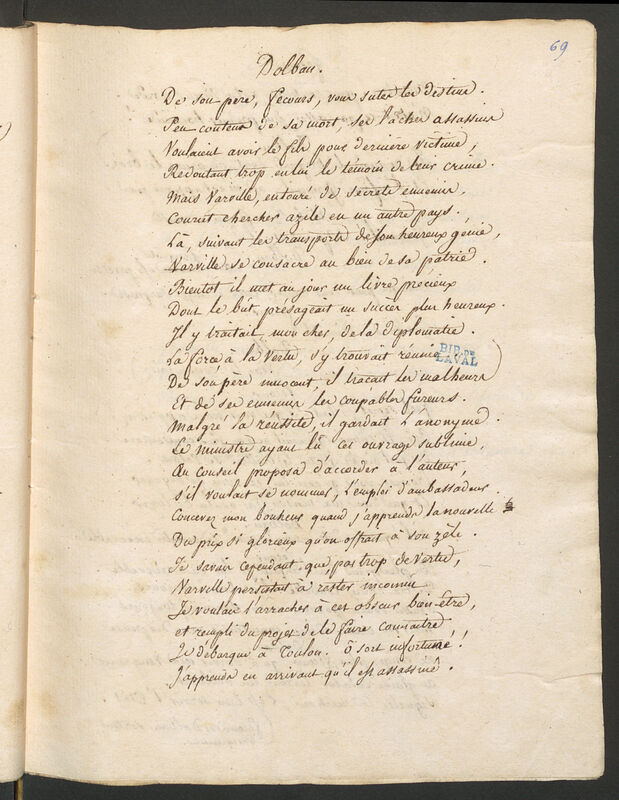 69
Dolban.
De son père, Secours, vous sutes les destins.
Peu contens de sa mort, ses lâches assassins
Voulaient avoir le fils pour dernière victime,
Redoutant trop en lui le témoin de leur crime.
Mais Varville, entouré de secrets ennemis,
Courut chercher azile en un autre pays.
Là, suivant les transports de son heureux génie,
Varville se consacre au bien de sa patrie.
Bientot il met au jour un livre précieux
Dont le bût présageait un succès plus heureux.
Il y traitait, mon cher, de la diplomatie.
La force à la Vertu, s'y trouvait réunie
BIB. DE
LAVAL
De son père innocent, il traçait les malheurs
Et de ses ennemis les coupables fureurs.
Malgré la réussite, il gardait L'anonyme.
Le ministre ayant lû cet ouvrage sublime,
Au conseil proposa d'accorder à l'auteur,
s'il voulait se nommer, l'emploi d'ambassadeur.
Concevez mon bonheur quand j'apprends la nouvelle
Du prix si glorieux qu'on offrait à son zèle.
Je savais cependant que, par trop de Vertu,
Varville persistait à rester inconnu
Je voulais l'arracher à cet obscur bien-être,
et rempli du projet de le faire connaitre
Je débarque à Toulon. ô sort infortuné!!
J'apprends en arrivant qu'il est assassiné.